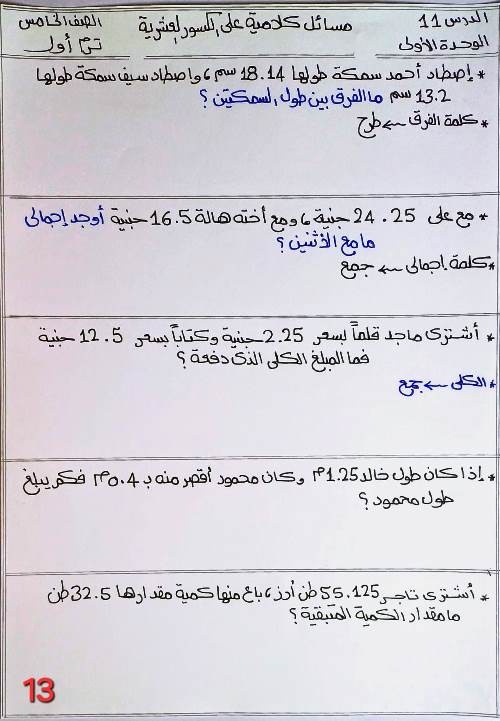 الدرس 11 مسائل كلامية على الكسور العشرية الصف الخامس
الوحدة الأولى ترم أول
* إصطاد أحمد سمكة طولها 18.14 سم، واصطاد سيف سمكة طولها
13.2 سم ما الفرق بين طول السمكتين ؟
* كلمة الفرق ← طرح
* مع على 24.25 جنية، ومع أخته هالة 16.5 جنية أوجد إجمالى
ما مع الأثنين ؟
* كلمة إجمالى ← جمع
* أشترى ماجد قلماً بسعر 2.25 جنية وكتاباً بسعر 12.5 جنية
فما المبلغ الكلى الذى دفعة ؟
* الكلى ← جمع
* إذا كان طول خالد 1.25م وكان محمود أقصر منه بـ 0.4م فكم يبلغ
طول محمود ؟
* أشترى تاجر 55.125 طن أرز، باع منها كمية مقدارها 32.5 طن
ما مقدار الكمية المتبقية ؟
13